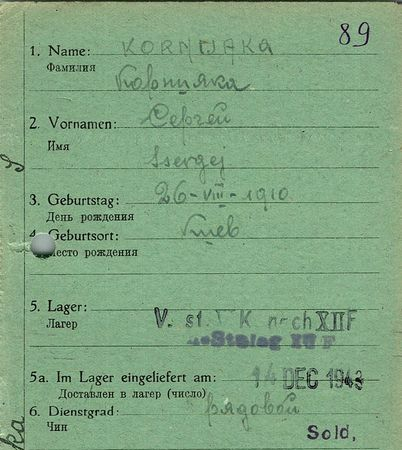 89
1. Name: KORNIJAKA
Фамилия
Корнияка
2. Vornamen: Сергей
Имя
Ssergej
3. Geburtstag: 26-VIII-1910
День рождения
4. Geburtsort: Киев
Место рождения
5. Lager: V. st. V K nach XII F
Лагер
Stalag XII F
5a. Im Lager eingeliefert am: 14 DEC 1943
Доставлен в лагер (число)
6. Dienstgrad: рядовой
Чин
Sold.
ka